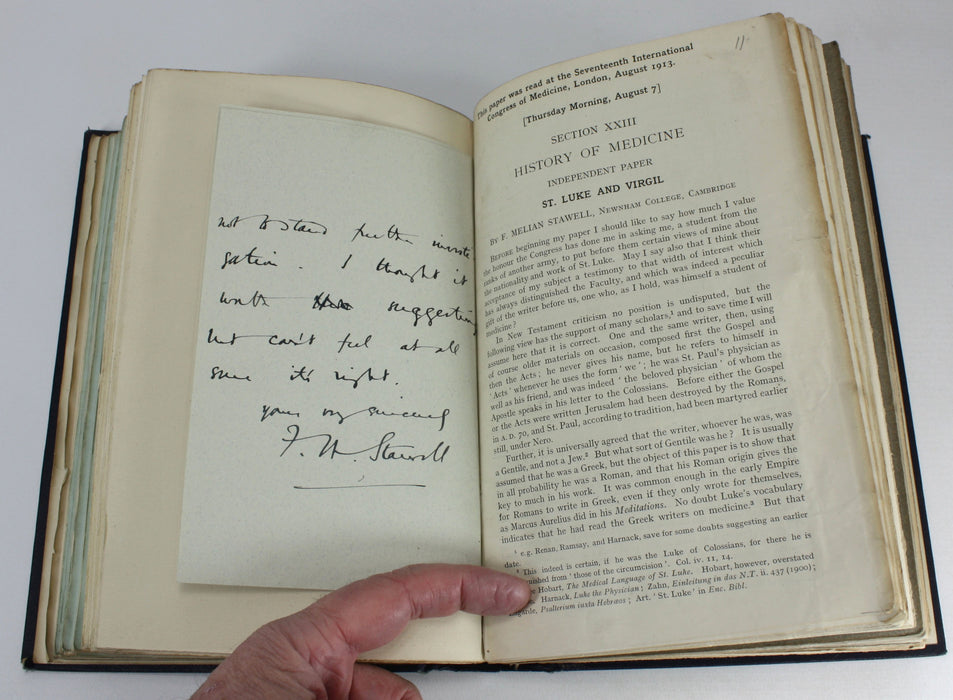 not to stand further investi
gation. I thought it
worth suggesting
but can't feel at all
sure it's right.
yours very sincerely
F. M. Stawell
11
This paper was read at the Seventeenth International
Congress of Medicine, London, August 1913.
[Thursday Morning, August 7]
SECTION XXIII
HISTORY OF MEDICINE
INDEPENDENT PAPER
ST. LUKE AND VIRGIL
By F. MELIAN STAWELL, Newnham College, Cambridge
Before beginning my paper I should like to say how much I value
the honour the Congress has done me in asking me, a student from the
ranks of another army, to put before them certain views of mine about
the nationality and work of St. Luke. May I say also that I think their
acceptance of my subject a testimony to that width of interest which
has always distinguished the Faculty, and which was indeed a peculiar
gift of the writer before us, one who, as I hold, was himself a student of
medicine?
In New Testament criticism no position is undisputed, but the
following view has the support of many scholars,¹ and to save time I will
assume here that it is correct. One and the same writer, then, using
of course older materials on occasion, composed first the Gospel and
then the Acts; he never gives his name, but he refers to himself in
'Acts' whenever he uses the form 'we'; he was St. Paul's physician as
well as his friend, and was indeed 'the beloved physician' of whom the
Apostle speaks in his letter to the Colossians. Before either the Gospel
or the Acts were written Jerusalem had been destroyed by the Romans,
in A.D. 70, and St. Paul, according to tradition, had been martyred earlier
still, under Nero.
Further, it is universally agreed that the writer, whoever he was, was
a Gentile, and not a Jew.² But what sort of Gentile was he? It is usually
assumed that he was a Greek, but the object of this paper is to show that
in all probability he was a Roman, and that his Roman origin gives the
key to much in his work. It was common enough in the early Empire
for Romans to write in Greek, even if they only wrote for themselves,
as Marcus Aurelius did in his Meditations. No doubt Luke's vocabulary
indicates that he had read the Greek writers on medicine.³ But that
¹ e.g. Renan, Ramsay, and Harnack, save for some doubts suggesting an earlier
date.
² This indeed is certain, if he was the Luke of Colossians, for there he is
from 'those of the circumcision'. Col. iv. 11, 14.
Hobart, The Medical Language of St. Luke. Hobart, however, overstated
Harnack, Luke the Physician; Zahn, Einleitung in das N.T. ii. 437 (1900);
Lagarde, Psalterium iuxta Hebraeos; Art. 'St. Luke' in Enc. Bibl.